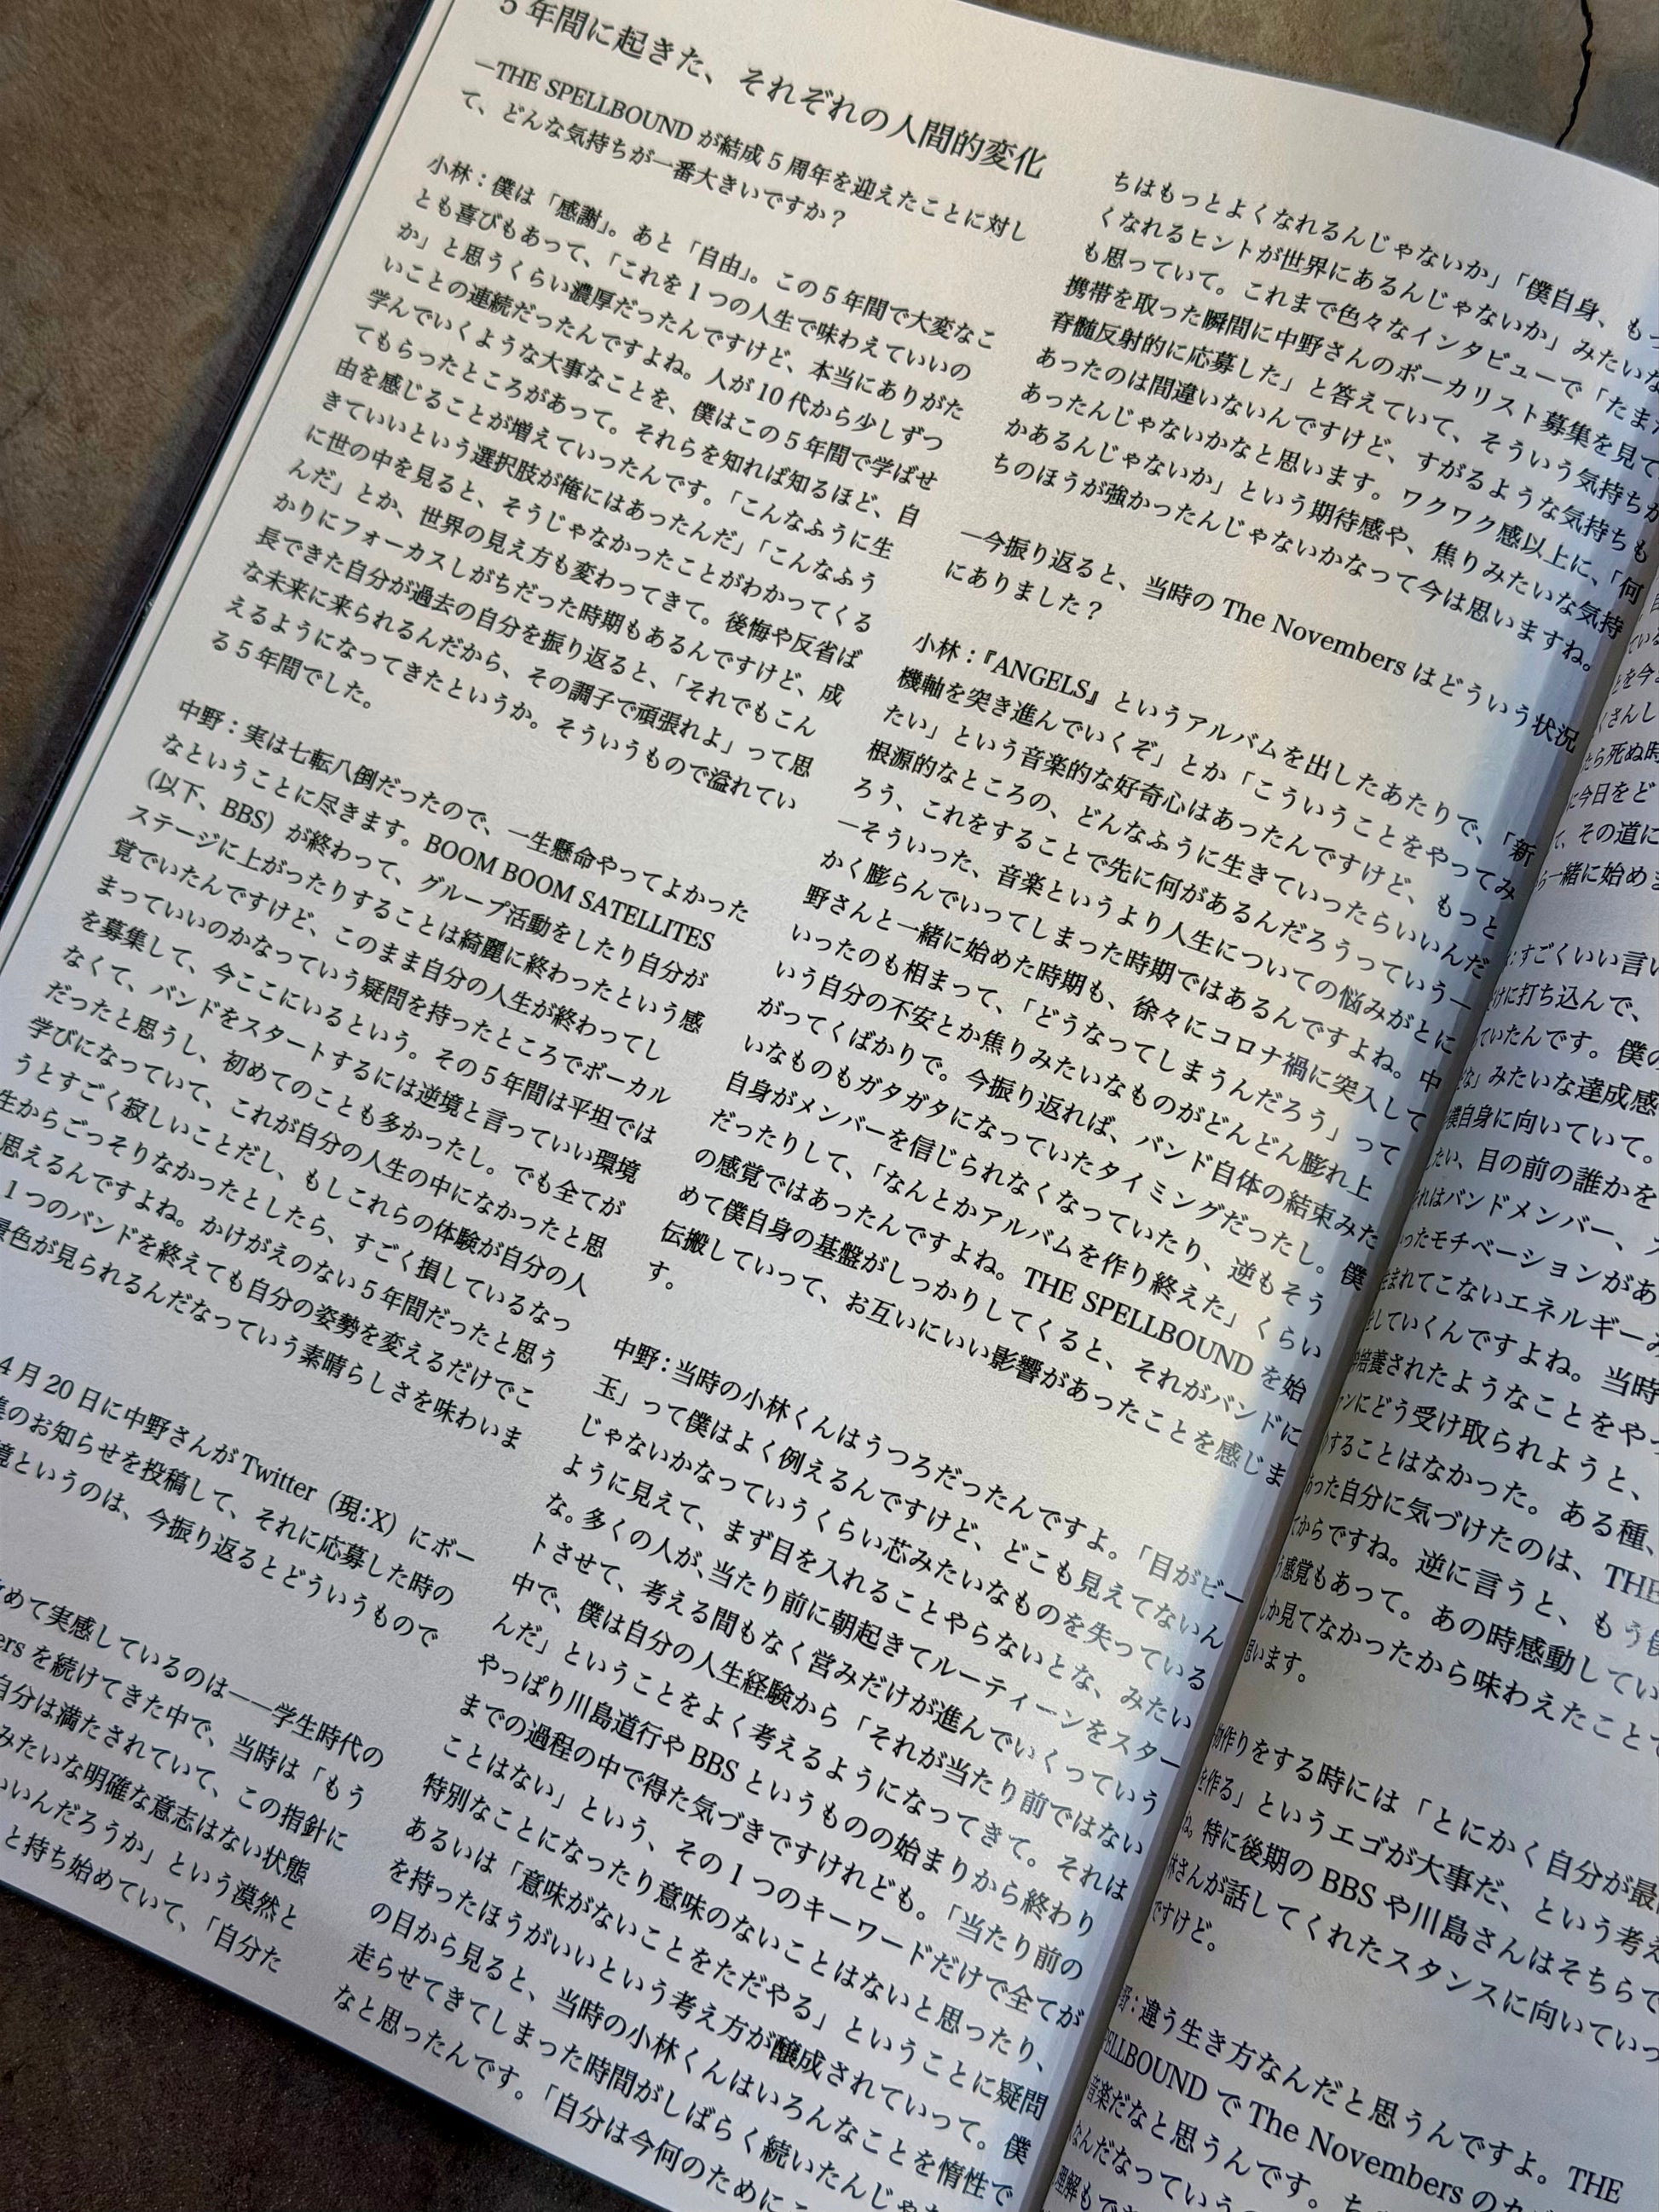 5年間に起きた、それぞれの人間的変化
―THE SPELLBOUND が結成5周年を迎えたことに対し
て、どんな気持ちが一番大きいですか？
小林：僕は「感謝」。あと「自由」。この5年間で大変なこ
とも喜びもあって、「これを1つの人生で味わえていいの
か」と思うくらい濃厚だったんですけど、本当にありがた
いことの連続だったんですよね。人が10代から少しずつ
学んでいくような大事なことを、僕はこの5年間で学ばせ
てもらったところがあって。それらを知れば知るほど、自
由を感じることが増えていったんです。「こんなふうに生
きていいという選択肢が俺にはあったんだ」「こんなふう
に世の中を見ると、そうじゃなかったことがわかってくる
んだ」とか、世界の見え方も変わってきて。後悔や反省ば
かりにフォーカスしがちだった時期もあるんですけど、成
長できた自分が過去の自分を振り返ると、「それでもこん
な未来に来られるんだから、その調子で頑張れよ」って思
えるようになってきたというか。そういうもので溢れてい
る5年間でした。
中野：実は七転八倒だったので、一生懸命やってよかった
なということに尽きます。BOOM BOOM SATELLITES
（以下、BBS）が終わって、グループ活動をしたり自分が
ステージに上がったりすることは綺麗に終わったという感
覚でいたんですけど、このまま自分の人生が終わってし
まっていいのかなっていう疑問を持ったところでボーカル
を募集して、今ここにいるという。その5年間は平坦では
なくて、バンドをスタートするには逆境と言っていい環境
だったと思うし、初めてのことも多かったし。でも全てが
学びになっていて、これが自分の人生の中になかったと思
うとすごく寂しいことだし、もしこれらの体験が自分の人
生からごっそりなかったとしたら、すごく損しているなっ
思えるんですよね。かけがえのない5年間だったと思う
1つのバンドを終えても自分の姿勢を変えるだけでこ
景色が見られるんだなっていう素晴らしさを味わいま
4月20日に中野さんがTwitter（現:X）にボー
集のお知らせを投稿して、それに応募した時の
境というのは、今振り返るとどういうもので
めて実感しているのは――学生時代の
ersを続けてきた中で、当時は「もう
自分は満たされていて、この指針に
みたいな明確な意志はない状態
いいんだろうか」という漠然と
と持ち始めていて、「自分た
ちはもっとよくなれるんじゃないか」「僕自身、もっ
くなれるヒントが世界にあるんじゃないか」みたいな
も思っていて。これまで色々なインタビューで「たまた
携帯を取った瞬間に中野さんのボーカリスト募集を見て
脊髄反射的に応募した」と答えていて、そういう気持ちが
あったのは間違いないんですけど、すがるような気持ちも
あったんじゃないかなと思います。ワクワク感以上に、「何
かあるんじゃないか」という期待感や、焦りみたいな気持
ちのほうが強かったんじゃないかなって今は思いますね。
―今振り返ると、当時の The Novembers はどういう状況
にありました？
小林：『ANGELS』というアルバムを出したあたりで、「新
機軸を突き進んでいくぞ」とか「こういうことをやってみ
たい」という音楽的な好奇心はあったんですけど、もっと
根源的なところの、どんなふうに生きていったらいいんだ
ろう、これをすることで先に何があるんだろうっていう―
―そういった、音楽というより人生についての悩みがとに
かく膨らんでいってしまった時期ではあるんですよね。中
野さんと一緒に始めた時期も、徐々にコロナ禍に突入して
いったのも相まって、「どうなってしまうんだろう」って
いう自分の不安とか焦りみたいなものがどんどん膨れ上
がってくばかりで。今振り返れば、バンド自体の結束みた
いなものもガタガタになっていたタイミングだったし。僕
自身がメンバーを信じられなくなっていたり、逆もそう
だったりして、「なんとかアルバムを作り終えた」くらい
の感覚ではあったんですよね。THE SPELLBOUND を始
めて僕自身の基盤がしっかりしてくると、それがバンドに
伝搬していって、お互いにいい影響があったことを感じま
す。
中野：当時の小林くんはうつろだったんですよ。「目がビー
玉」って僕はよく例えるんですけど、どこも見えてないん
じゃないかなっていうくらい芯みたいなものを失っている
ように見えて、まず目を入れることやらないとな、みたい
な。多くの人が、当たり前に朝起きてルーティーンをスター
トさせて、考える間もなく営みだけが進んでいくっていう
中で、僕は自分の人生経験から「それが当たり前ではない
んだ」ということをよく考えるようになってきて。それは
やっぱり川島道行や BBS というものの始まりから終わり
までの過程の中で得た気づきですけれども。「当たり前の
ことはない」という、その1つのキーワードだけで全てが
特別なことになったり意味のないことはないと思ったり、
あるいは「意味がないことをただやる」ということに疑問
を持ったほうがいいという考え方が醸成されていって。僕
の目から見ると、当時の小林くんはいろんなことを惰性で
走らせてきてしまった時間がしばらく続いたんじゃ
なと思ったんです。「自分は今何のために
を今
さんし
ら死ぬ時
に今日をど
、その道に
一緒に始めま
：すごくいい言い
けに打ち込んで、
ていたんです。僕の
な」みたいな達成感
僕自身に向いていて。
たい、目の前の誰かを
れはバンドメンバー、
ったモチベーションがあ
まれてこないエネルギー
をしていくんですよね。当時
培養されたようなことをやっ
ンにどう受け取られようと、
することはなかった。ある種、
あった自分に気づけたのは、THE
てからですね。逆に言うと、もう
う感覚もあって。あの時感動してい
か見てなかったから味わえたことで
思います。
物作りをする時には「とにかく自分が最
を作る」というエゴが大事だ、という考え
ね。特に後期の BBS や川島さんはそちらで
林さんが話してくれたスタンスに向いていっ
ですけど。
野：違う生き方なんだと思うんですよ。THE
SPELLBOUND で The Novembers の
音楽だなと思うんです。
なんだなっていう
理解もでき